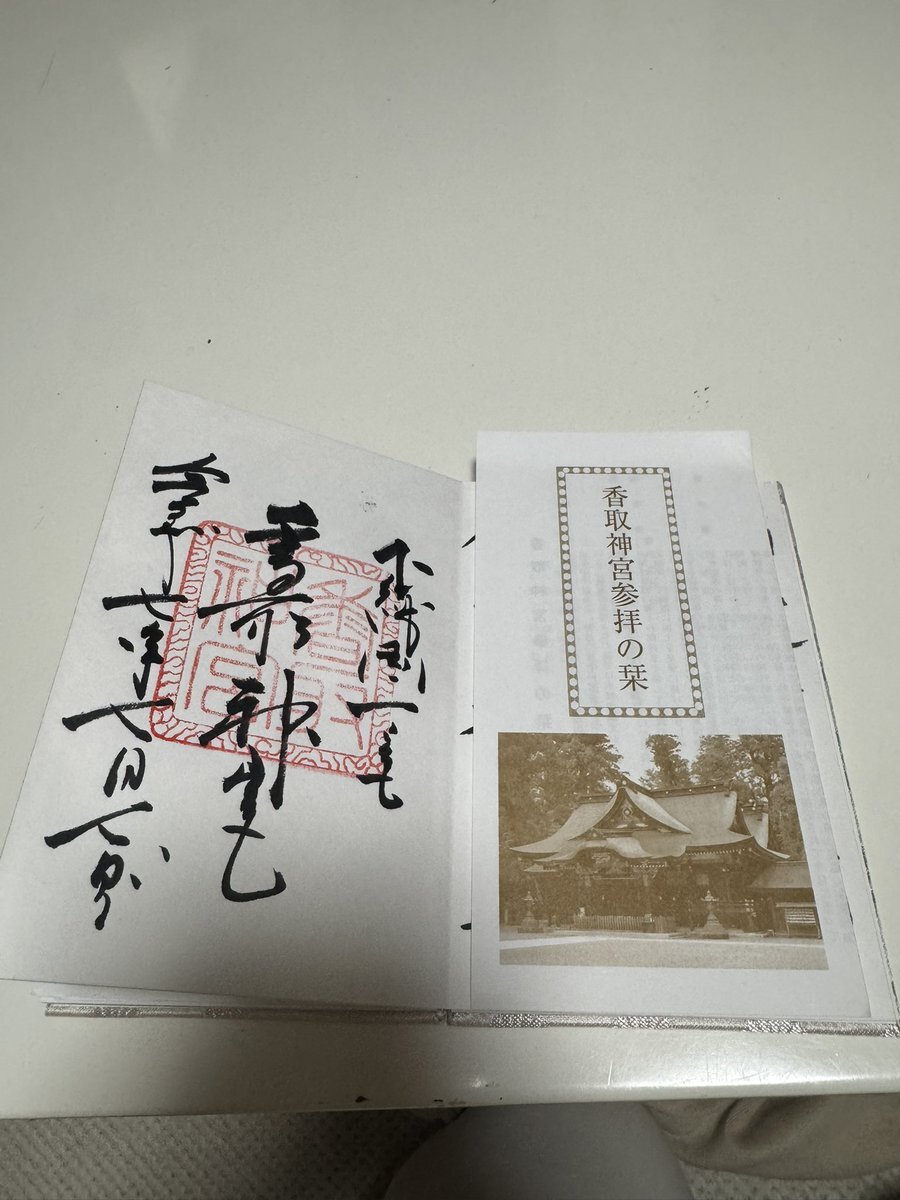 香取神宮参拝の栞
下総国一之宮
香取神宮
香取
神宮
令和七年七月